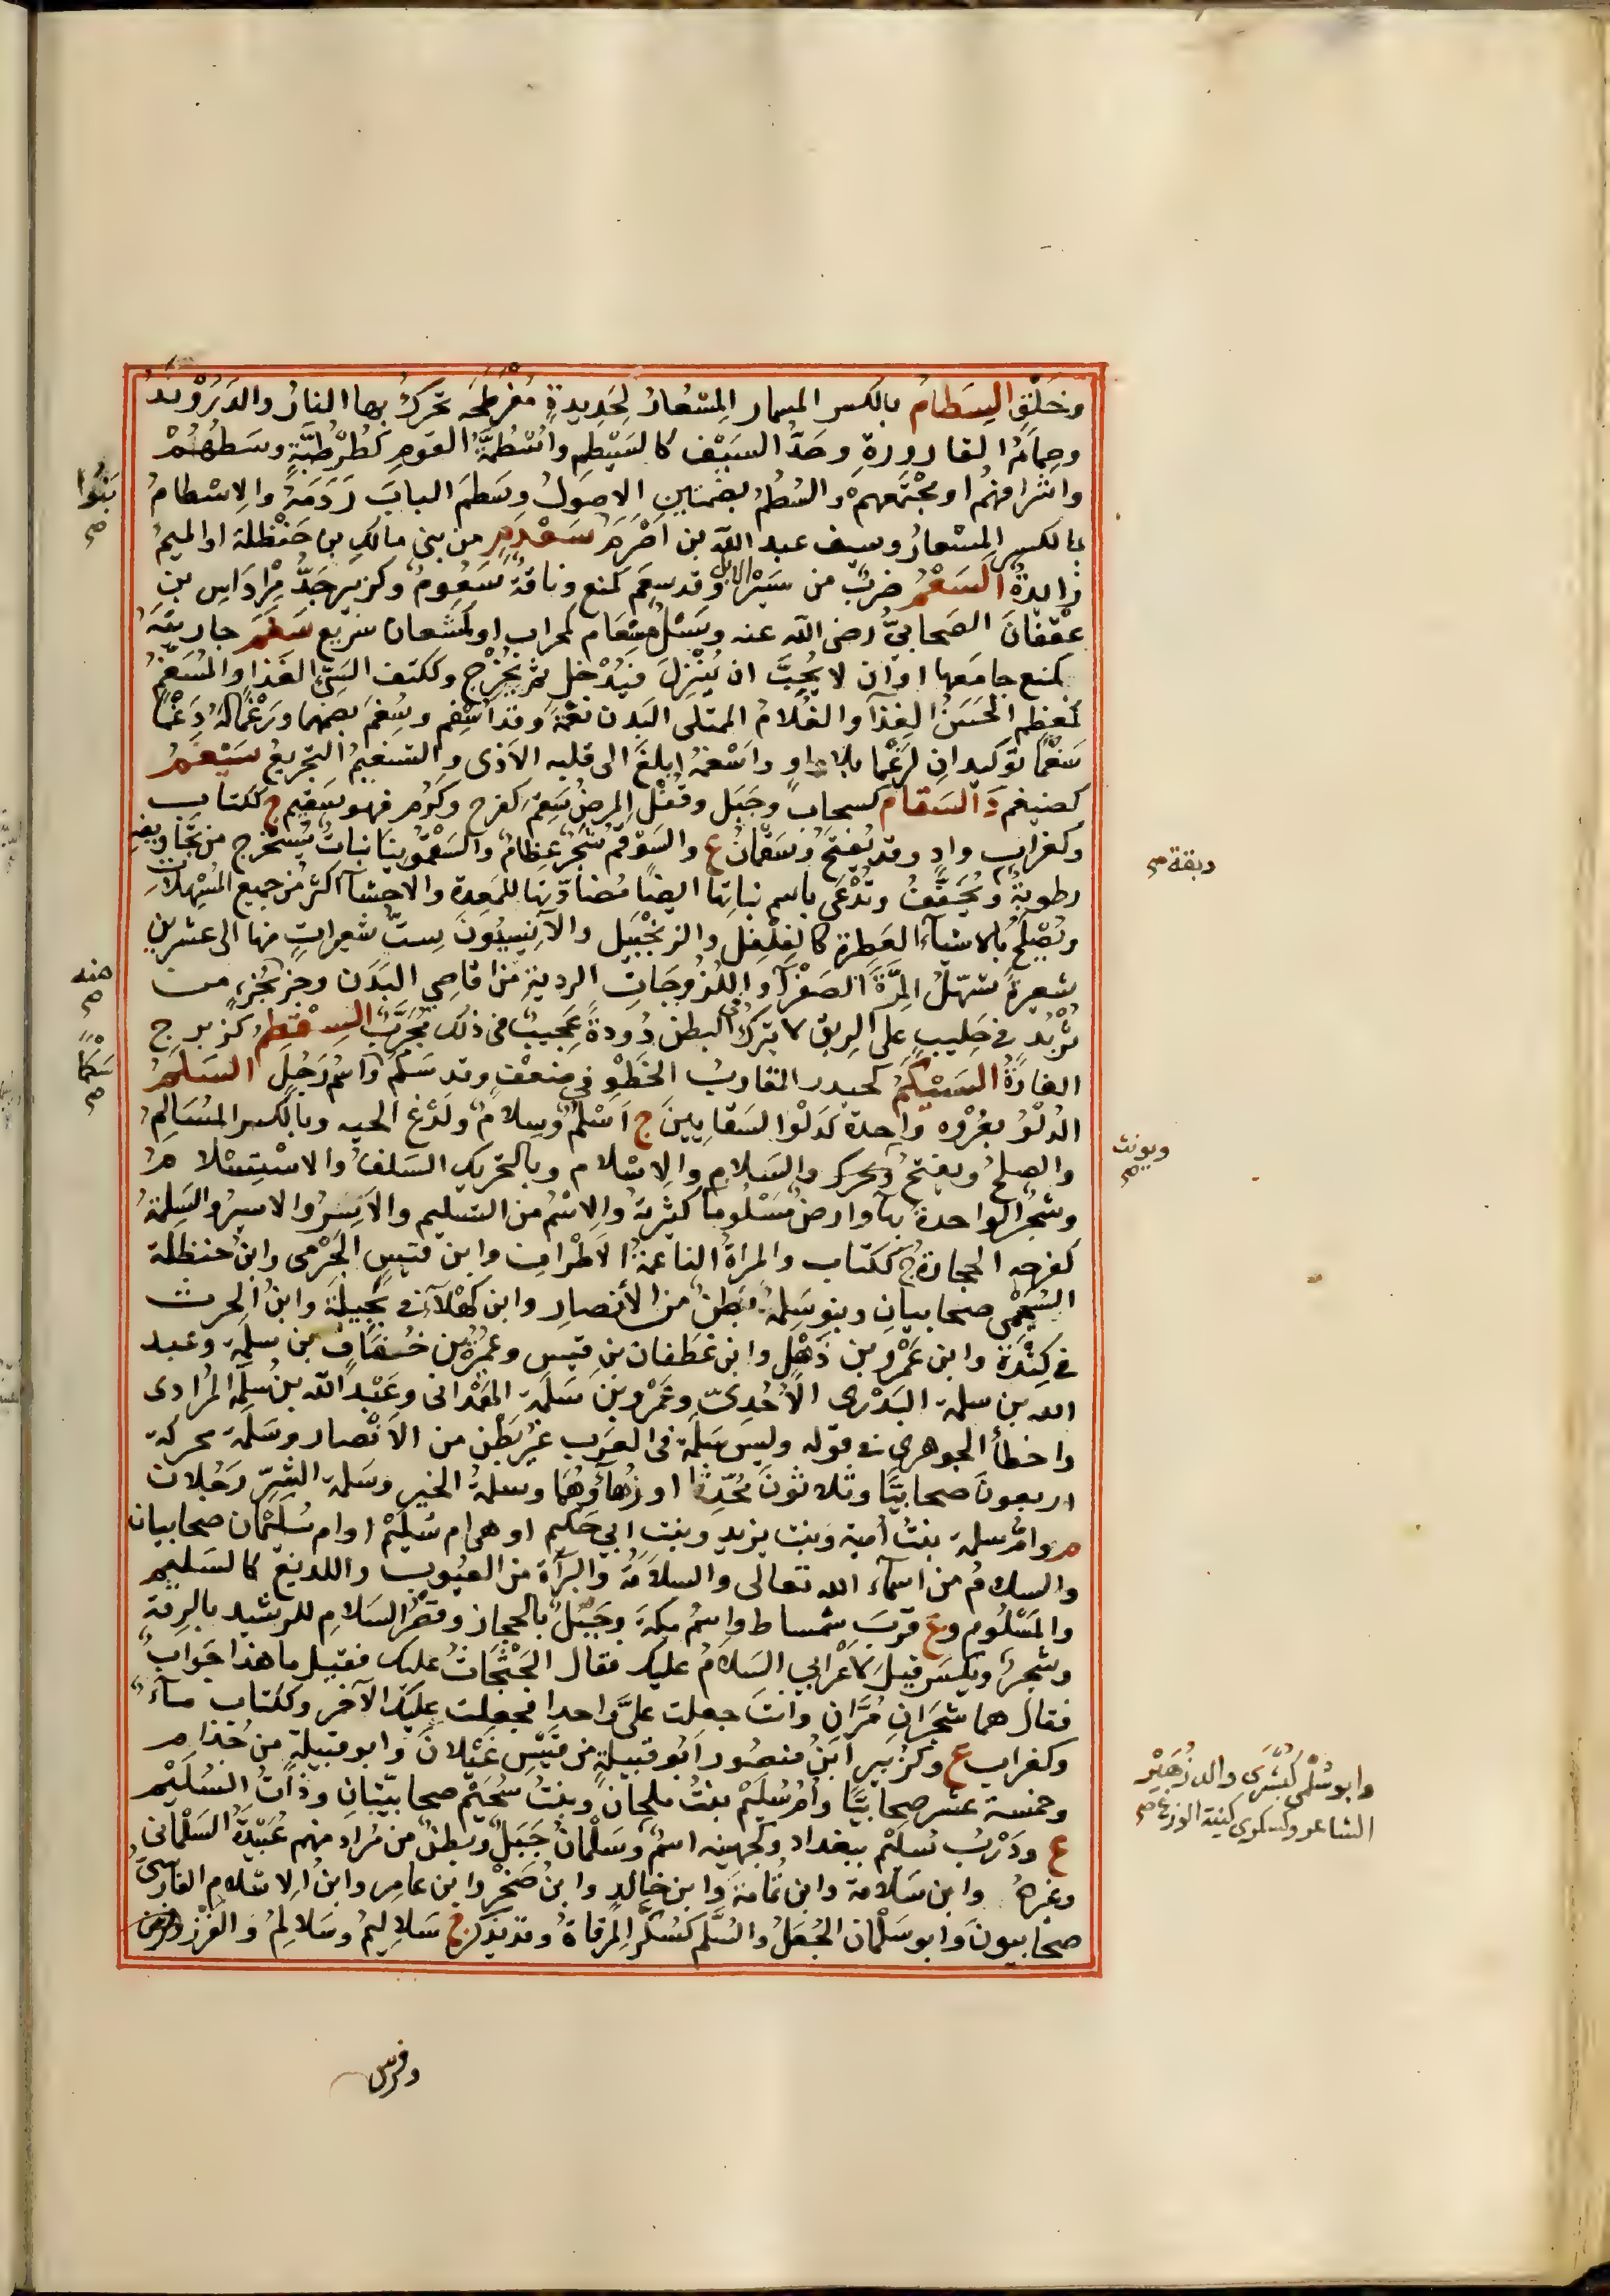 وخلق السطام بالكسر المسمار المسعار لحديدة مفرطحة تحرك بها النار والدروند
وصمام القارورة وحد السيف كالسطم واسطمة القوم كطرطبة وسطهم
واشرافهم او مجتمعهم والسطم بضمتين الاصول وسطم الباب ردمه والاسطام
بالكسر المسعار وسيف عبد الله بن اصرم سعدم من بني مالك بن حنظلة او الميم
زايدة السعم ضرب من سير الابل وقد سعم كمنع وناقة سعوم وكزبير جد مرداس بن
عقفان الصحابي رضي الله عنه وسيل مسعام كمحراب او كمشعان سريع سغم جاريته
كمنع جامعها او ان لا يحب ان ينزل فيدخل ثم يخرج وككتف السيئ الغذا والمسغم
كمعظم الحسن الغذا والغلام الممتلئ البدن نعمة وقد اسغم وسغم بضمهما ورغما له دغما
سغما توكيدان لرغما بلا واو واسغمه ابلغ الى قلبه الاذى والتسغيم التجريع سيغم
كضيغم د السقام كسحاب وجبل وقفل المرض سقم كفرح وكرم فهو سقيم ج ككتاب
وكغراب واد وقد يفتح وسقمان ع والسوقم شجر عظام والسقمونيا نبات يستخرج من تجاويفه
رطوبة ويجفف وتدعى باسم نباتها ايضا مضادتها للمعدة والاحشا اكثر من جميع المسهلات
وتصلح بالاشياء العطرة كالفلفل والزنجبيل والانيسون ست شعيرات منها الى عشرين
شعيرة تسهل المرة الصفرا واللزوجات الردية من اقاصي البدن وجزء بجزء من
تربد في حليب على الريق لا يترك في البطن دودة عجيب في ذلك مجرب السقطم كزبرج
الفارة السيكم كحيدر المقارب الخطو في ضعف وقد سكم واسم رجل السلم
الدلو بعروة واحدة كدلو السقايين ج اسلم وسلام ولدغ الحيه وبالكسر المسالم
والصلح ويفتح ويحرك والسلام والاسلام وبالتحريك السلف والاستسلام
وشجر الواحدة بهاء وارض مسلوما كثيرته والاسم من التسليم والاسر والاسير والسلمة
كفرحه الحجارة ج ككتاب والمراة الناعمة الاطراف وابن قيس الجرمى وابن حنظلة
السحيمى صحابيان وبنو سلمة بطن من الأنصار وابن كهلا في بجيلة وابن الحرث
في كندة وابن عمرو بن ذهل وابن غطفان بن قيس وعميرة بن خفاف بن سلمة وعبد
الله بن سلمة البدرى الأحدى وعمرو بن سلمة الهمدانى وعبد الله بن سلمة المرادى
واخطأ الجوهرى في قوله وليس سلمة فى العرب غير بطن من الانصار وسلمة محركة
اربعون صحابيا وثلاثون محدثا او زهاؤهما وسلمة الخير وسلمة الشر رجلان
م وام سلمة بنت امية وبنت يزيد وبنت ابي حكيم او هى ام سليم او ام سليمان صحابيات
والسلام من اسماء الله تعالى والسلامة والبرآة من العيوب واللديغ كالسليم
والمسلوم وع قرب سمساط واسم مكة وجبل بالحجاز وقصر السلام للرشيد بالرقة
وشجر ويكسر قيل لاعرابي السلام عليك فقال الجثجاث عليك فقيل ما هذا جواب
فقال هما شجران مران وانت جعلت على واحدا فجعلت عليك الآخر وككتاب ماء
وكغراب ع وكزبير ابن منصور ابو قبيلة من قيس عيلان وابو قبيلة من جذام
وخمسة عشر صحابيا وام سليم بنت ملحان وبنت سحيم صحابيتان وذات السليم
ع ودرب سليم ببغداد وكجهينه اسم وسلمان جبل وبطن من مراد منهم عبيدة السلمانى
وغيره وابن سلامة وابن ثمامة وابن خالد وابن صخر وابن عامر وابن الاسلام الفارسى
صحابيون وابو سلمان الجعل والسلم كسكر المرقاة وقد يذكر ج سلاليم وسلالم والغرز وفرس
بنوا
صح
منه
صح
سكما
صح
ديقة صح
ويونث
صح
وابو سلمى كبشرى والد زهير
الشاعر وكسكرى كنية الوزغ صح
وفرس